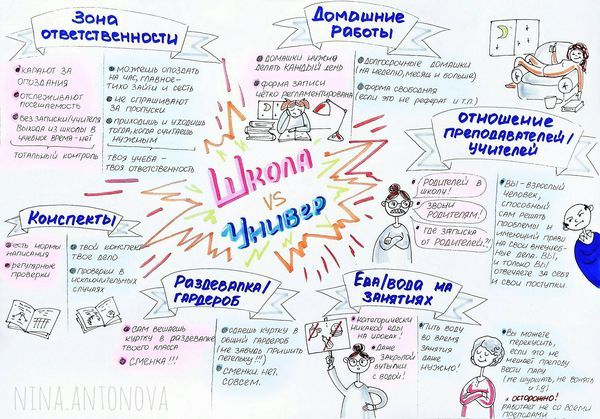 Зона
ответственности
карают за
опоздания
отслеживают
посещаемость
без записки/учителя
выхода из школы в
учебное время-нет
тотальный контроль
можешь опоздать
на час, главное-
тихо зайти и сесть
не спрашивают
за пропуски
приходишь и уходишь
тогда, когда считаешь
нужным
твоя учеба -
твоя ответственность
Домашние
работы
домашки нужно
делать каждый день
форма записи
четко регламентирована
долгосрочные домашки
(на неделю, месяц и больше)
форма свободная
(если это не реферат и т.п.)
Школа
vs
Универ
Отношение
преподавателей/
учителей
Родителей в
школу!
Звони
родителям!
Где записка
от родителей?!
Вы - взрослый
человек,
способный
сам решать
проблемы и
имеющий право
на свои внеучеб-
ные дела. Вы,
и только Вы
отвечаете за себя
и свои поступки.
Конспекты
есть нормы
написания
регулярные
проверки
твой конспект-
твое дело
проверки в
исключительных
случаях
Раздевалка/
гардероб
сам вешаешь
куртку в раздевалке
твоего класса
Сменка!!!
отдаешь куртку в
общий гардероб
(не забудь пришить
петельку!!!)
Сменки нет.
Совсем.
Еда/вода на
занятиях
Категорически
никакой еды
на уроках!
Даже
закрытой
бутылки
с водой!
Пить воду
во время
занятия
даже
нужно!
Вы можете
перекусить,
если это не
мешает препод
вести пару
(не шуршать, не вонять
и т.д)
х осторожно!
работает не со всеми
преподами
NINA.ANTONOVA